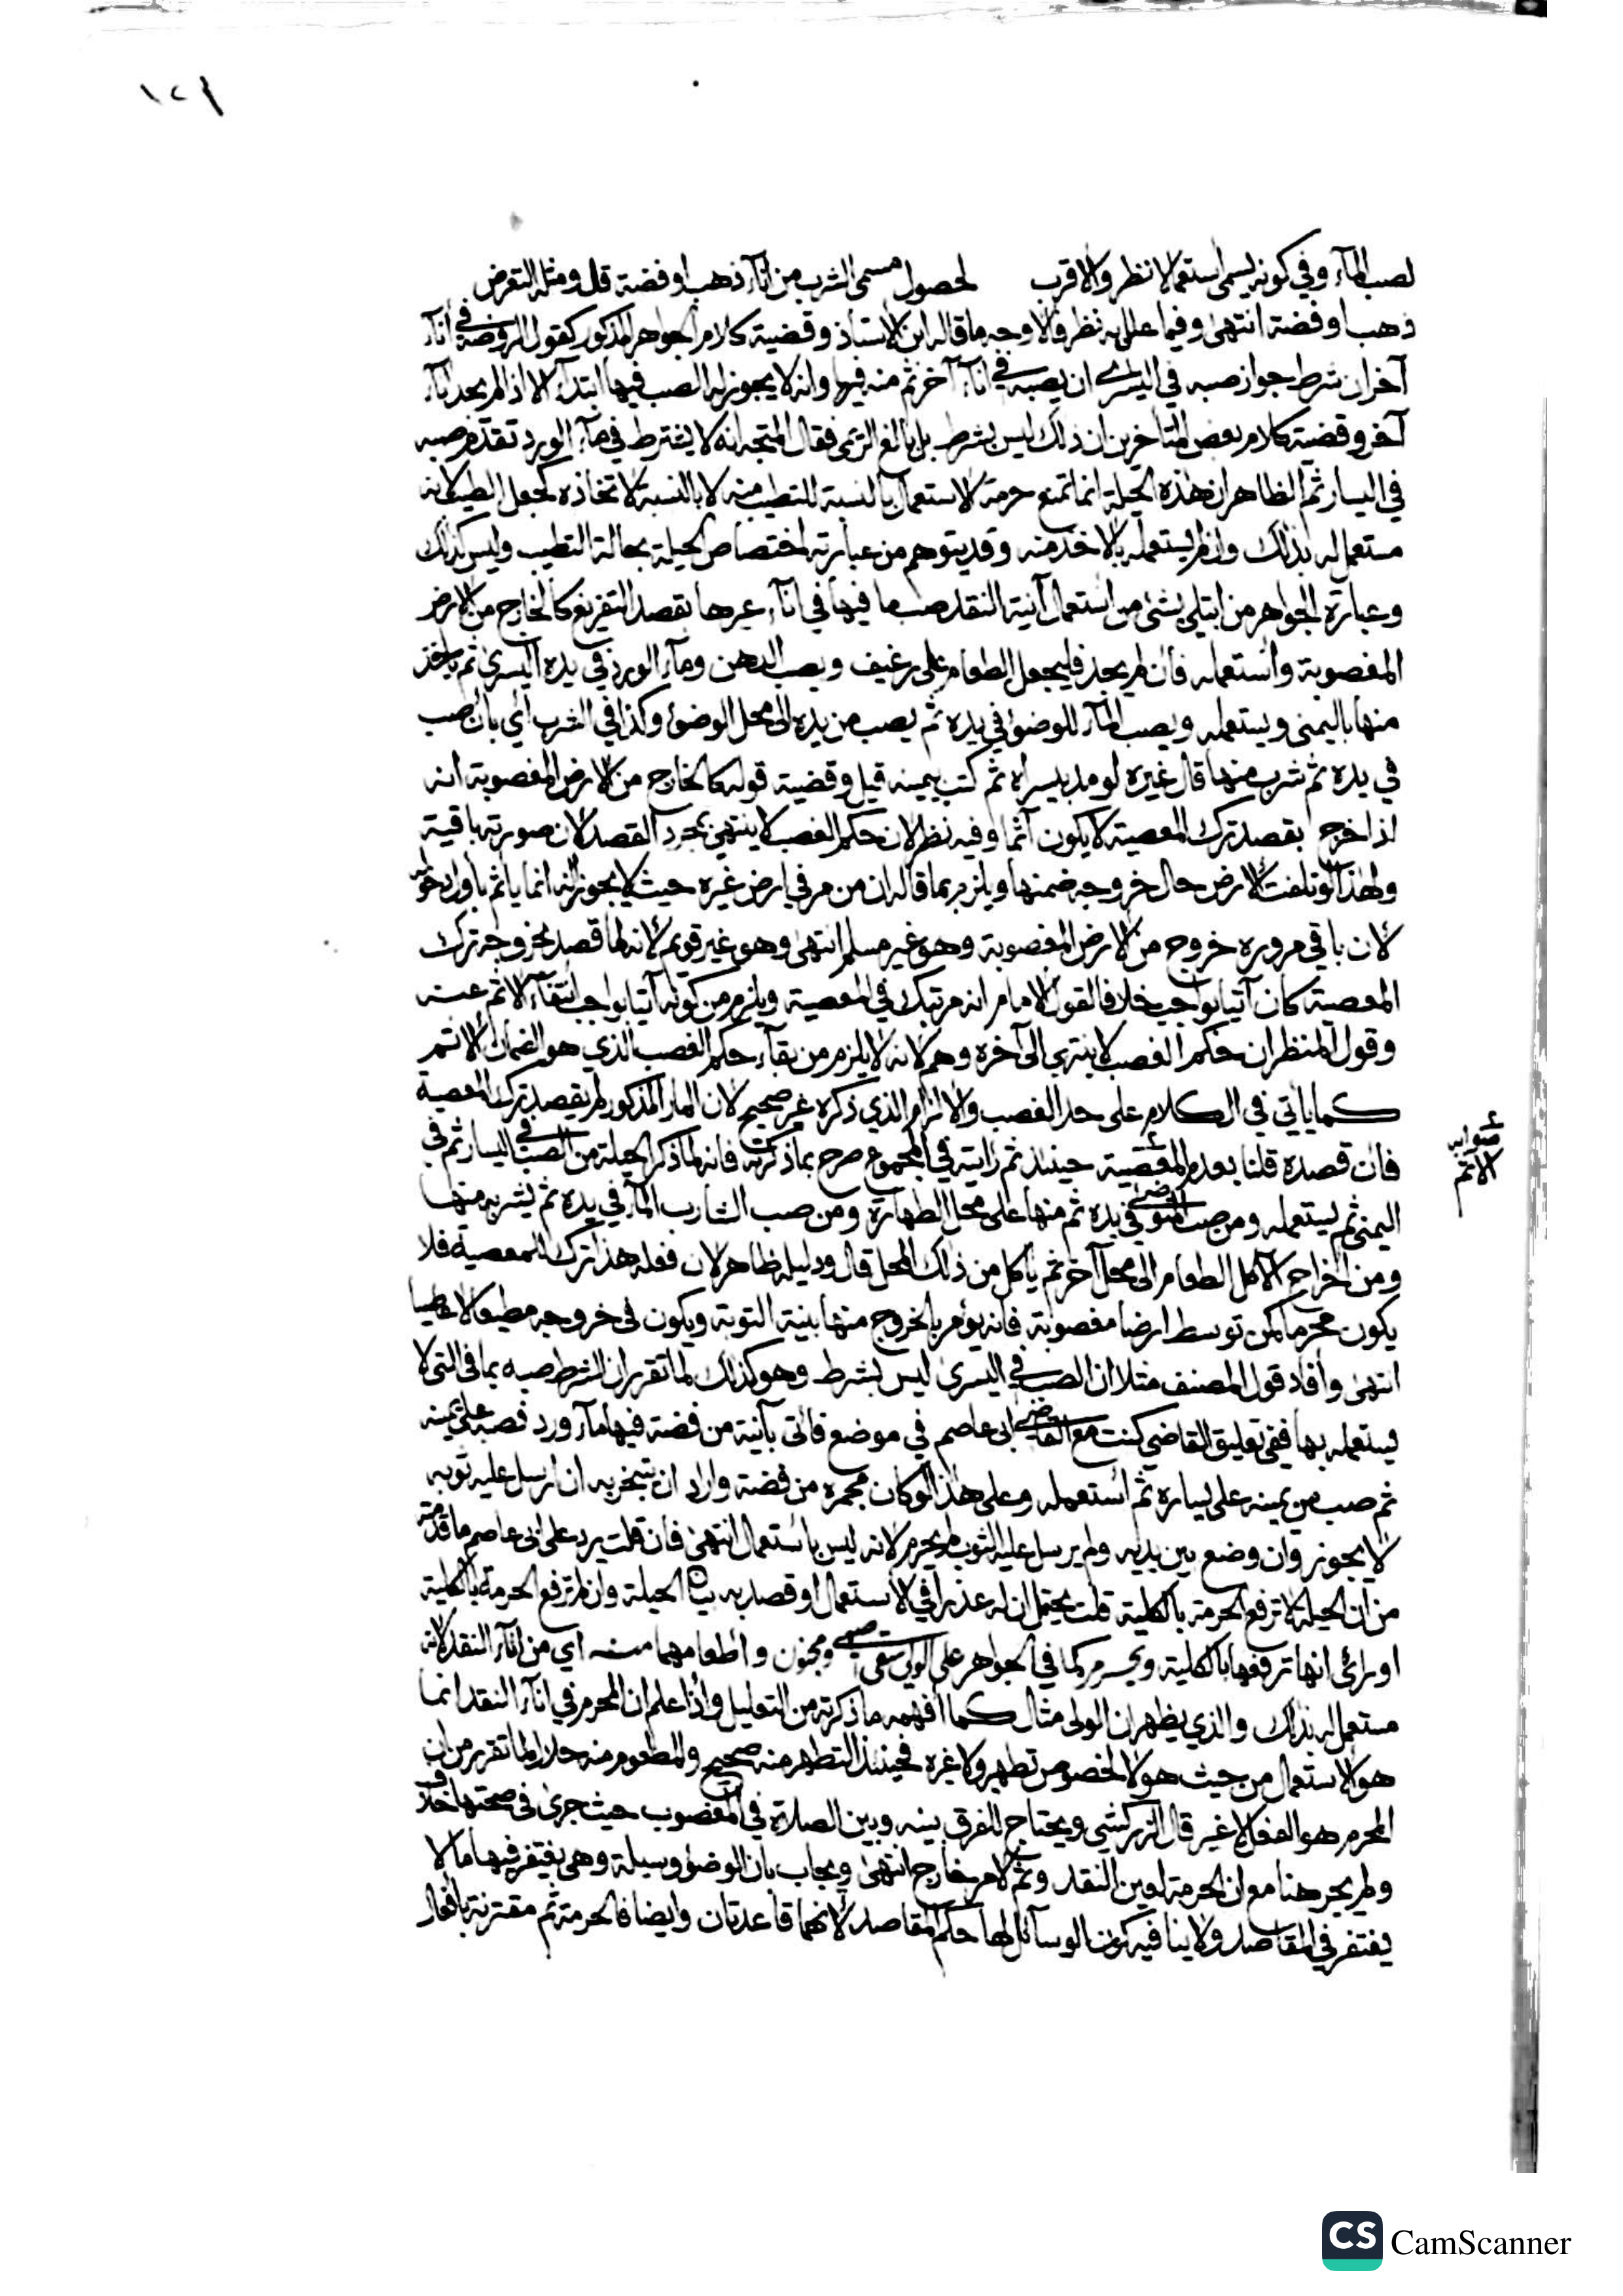 ١٢٦
لصب المآء وفي كونه يسمى استعمالا نظر والاقرب لحصول مسمى الشرب من انآء ذهب او فضة قل ومثله التعرض
ذهب او فضة انتهى وفيما علل به نظر فالاوجه ما قاله ابن الاستاذ وقضية كلام الجواهر المذكور كقول الروضة في انآء
آخر ان شرط جواز صبه في اليسرى ان يصبه في انآء آخر ثم منه فيها وانه لا يجوز له الصب فيها ابتدآء الا اذا لم يجد انآء
آخر وقضية كلام بعض المتاخرين ان ذلك ليس بشرط بل بالغ الزكي فقال المتجه انه لا يشترط في مآء الورد تقدم صبه
في اليسار ثم الظاهر ان هذه الحيلة انما تمنع حرمة الاستعمال بالنسبة للتطيب منه لا بالنسبة لاتخاذه لجعل الطيب لانه
مستعمل له بذلك وان لم يستعمله بالاخذ منه وقد يتوهم من عبارته اختصاص الحيلة بحالة التطيب وليس كذلك
وعبارة الجواهر من ابتلي بشئ من استعمال آنية النقد صب ما فيها في انآء غيرها بقصد التفريغ كالخارج من الارض
المغصوبة واستعمله فان لم يجد فليجعل الطعام على رغيف ويصب الدهن ومآء الورد في يده اليسرى ثم ياخذ
منها باليمنى ويستعمله ويصب المآء للوضوء في يده ثم يصب من يده الى محل الوضوء وكذا في الشرب اي بان يصب
في يده ثم شرب منها قال غيره لو مد بيسراه ثم كتب بيمينه قيل وقضية قوله كالخارج من الارض المغصوبة انه
اذا خرج بقصد ترك المعصية لا يكون آثما وفيه نظر لان حكم الغصب لا ينتهي بمجرد القصد لان صورته باقية
ولهذا لو تلفت الارض حال خروجه ضمنها ويلزم بما قاله ان من مر في ارض غيره حيث لا يجوز له انما ياثم باول دخوله
لان باقي مروره خروج من الارض المغصوبة وهو غير مسلم انتهى وهو غير قويم لانه لما قصد بخروجه ترك
المعصية كان آتيا بواجب خلافا لقول الامام انه مرتبك في المعصية ويلزم من كونه آتيا بواجب انتفآء الاثم عنه
وقول المنظر ان حكم الغصب لا ينتهي الى آخره وهم لانه لا يلزم من بقآء حكم الغصب الذي هو الضمان الاثم
كما ياتي في الكلام على حد الغصب والالزام الذي ذكره غير صحيح لان المار المذكور لم يقصد ترك المعصية
فان قصده قلنا بعدم المعصية حينئذ ثم رايته في المجموع صرح بما ذكرته فانه لما ذكر الحيلة من الصب في اليسار ثم في
صوابه الاثم
اليمنى ثم يستعمله ومن صب المتوضئ في يده ثم منها على محل الطهارة ومن صب الشارب المآء في يده ثم يشربه منها
ومن اخراج الآكل الطعام الى محل آخر ثم ياكل من ذلك المحل قال ودليله ظاهر لان فعله هذا ترك للمعصية فلا
يكون محرما كمن توسط ارضا مغصوبة فانه يؤمر بالخروج منها بنية التوبة ويكون في خروجه مطيعا لا عاصيا
انتهى وافاد قول المصنف مثلا ان الصب في اليسرى ليس بشرط وهو كذلك لما تقرر ان الشرط صبه بما في التي لا
يستعمله بها ففي تعليق القاضي كنت مع القاضي ابي عاصم في موضع فاتى بآنية من فضة فيها مآء ورد فصبه على يمينه
ثم صب من يمينه على يساره ثم استعمله وعلى هذا لو كان مجمرة من فضة واراد ان يتبخر به ان ارسل عليه ثوبه
لا يجوز وان وضع بين يديه ولم يرسل عليه الثوب لم يحرم لانه ليس باستعمال انتهى فان قلت يرد على ابي عاصم ما قدمته
من ان الحيلة لا ترفع الحرمة بالكلية قلت يحتمل ان له عذرا في الاستعمال او قصد به بيان الحيلة وان لم ترفع الحرمة بالكلية
او رأى انها ترفعها بالكلية ويحرم كما في الجواهر على الولي سقي صبي ومجنون واطعامهما منه اي من انآء النقد لانه
مستعمل له بذلك والذي يظهر ان الولي مثال كما افهمه ما ذكرته من التعليل واذا علم ان المحرم في انآء النقد انما
هو الاستعمال من حيث هو لا لخصوص تطهير ولا غيره فحينئذ التطهر منه صحيح والمطعوم منه حلال لما تقرر من ان
المحرم هو الفعل لا غير قال الزركشي ويحتاج للفرق بينه وبين الصلاة في المغصوب حيث جرى في صحتها خلاف
ولم يجر هنا مع ان الحرمة لعين النقد وثم لامر خارج انتهى ويجاب بان الوضوء وسيلة وهي يغتفر فيها ما لا
يغتفر في المقاصد ولا ينافيه كون الوسآئل لها حكم المقاصد لانهما قاعدتان وايضا فالحرمة ثم مقترنة بافعال
CS CamScanner